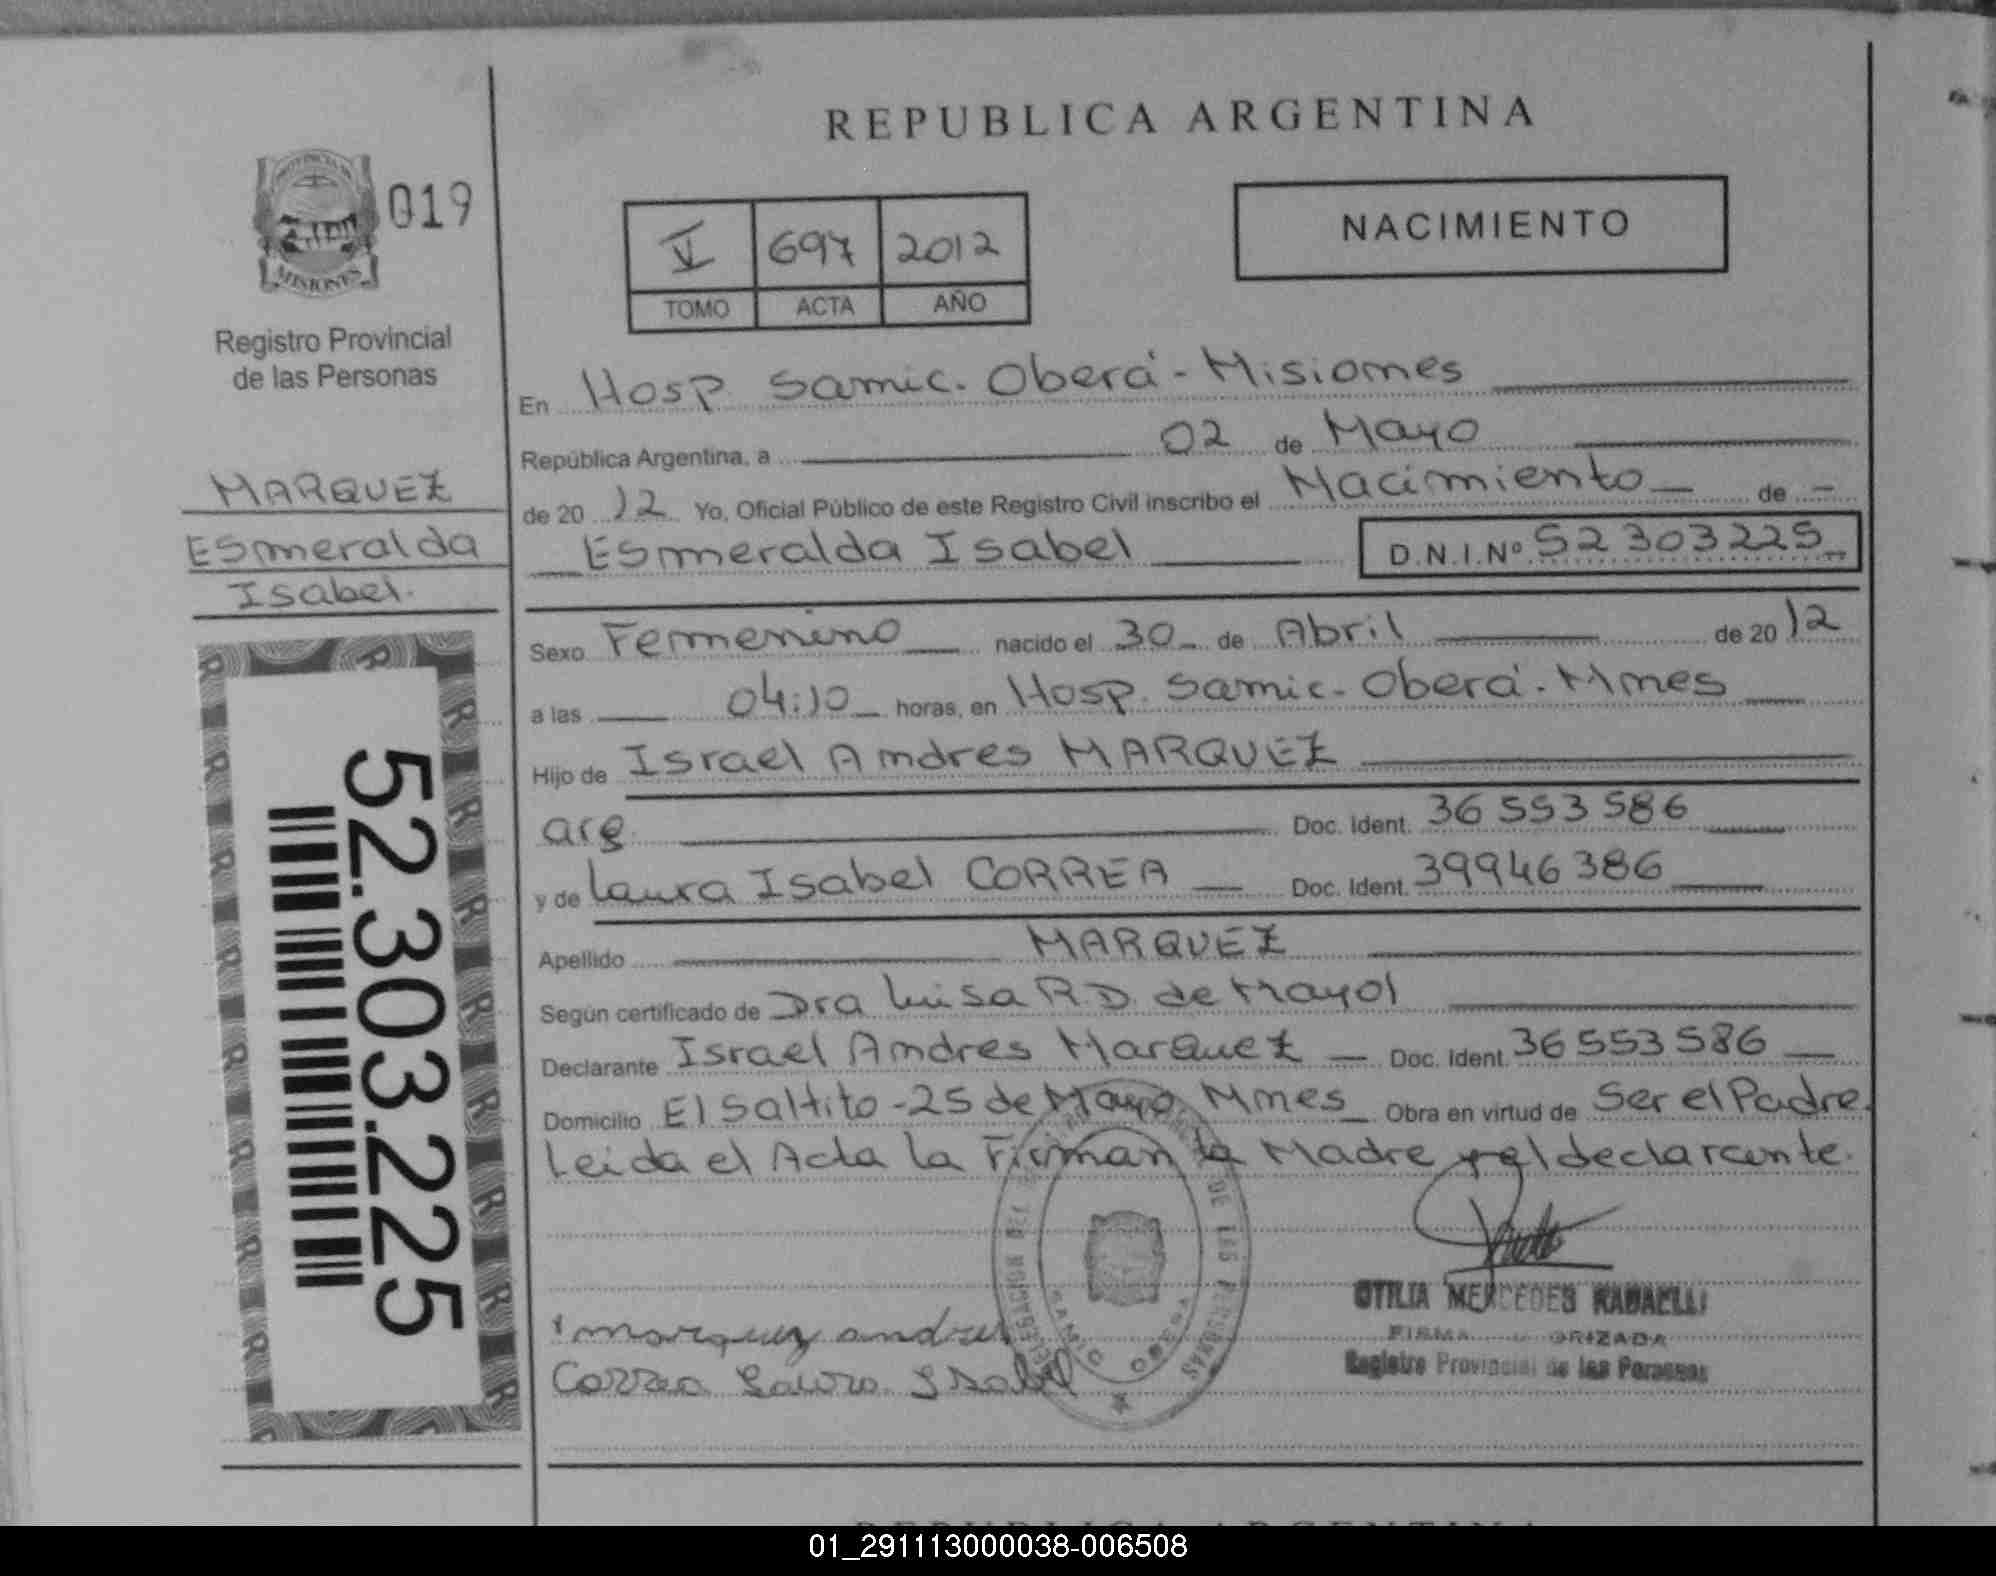 REPUBLICA ARGENTINA
PROVINCIA DE
MISIONES
019
Registro Provincial
de las Personas
MARQUEZ
Esmeralda
Isabel.
52.303.225
V 697 2012
TOMO ACTA AÑO
NACIMIENTO
En Hosp. Samic. Oberá - Misiones
República Argentina, a 02 de Mayo
de 2012 Yo, Oficial Público de este Registro Civil inscribo el Nacimiento de -
Esmeralda Isabel D.N.I.Nº 52 303225
Sexo Femenino nacido el 30 de Abril de 2012
a las 04:10 horas, en Hosp. Samic. Oberá. Mnes
Hijo de Israel Andres MARQUEZ
arg. Doc. Ident. 36 553 586
y de Laura Isabel CORREA Doc. Ident. 39946386
Apellido MARQUEZ
Según certificado de Dra Luisa R.D. de Mayol
Declarante Israel Andres Marquez Doc. Ident. 36 553 586
Domicilio El Saltito - 25 de Mayo Mnes Obra en virtud de Ser el Padre.
Leida el Acta la Firman la Madre y el declarante.
OTILIA MERCEDES
FIRMA AUTORIZADA
Registro Provincial de las Personas
marquez andres
Correa Laura Isabel
DE LAS PERSONAS
01_291113000038-006508